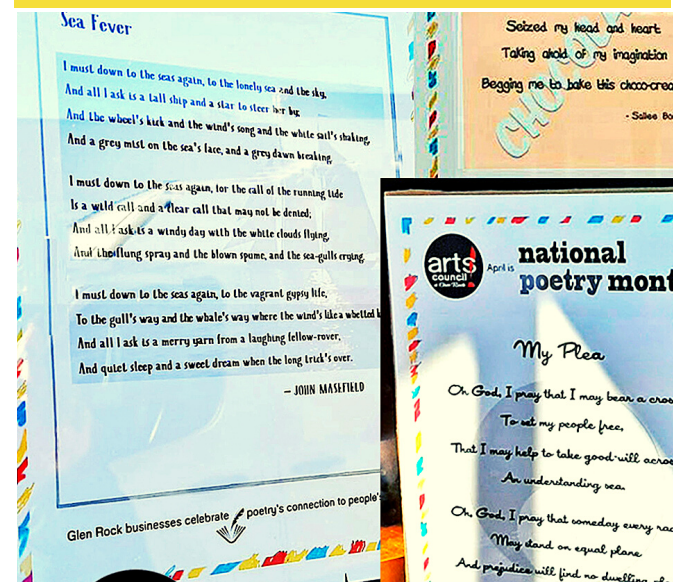 Sea Fever
I must down to the seas again, to the lonely sea and the sky,
And all I ask is a tall ship and a star to steer her by;
And the wheel's kick and the wind's song and the white sail's shaking,
And a grey mist on the sea's face, and a grey dawn breaking.
I must down to the seas again, for the call of the running tide
Is a wild call and a clear call that may not be denied;
And all I ask is a windy day with the white clouds flying,
And the flung spray and the blown spume, and the sea-gulls crying.
I must down to the seas again, to the vagrant gypsy life,
To the gull's way and the whale's way where the wind's like a whetted k
And all I ask is a merry yarn from a laughing fellow-rover,
And quiet sleep and a sweet dream when the long trick's over.
– JOHN MASEFIELD
Glen Rock businesses celebrate poetry's connection to people's
Seized my head and heart
Taking ahold of my imagination
Begging me to bake this choco-crea
- Sallee Bo
CHOCOLA
arts
council
of Glen Rock
April is
national
poetry mont
My Plea
Oh, God, I pray that I may bear a cros
To set my people free,
That I may help to take good-will acros
An understanding sea.
Oh, God, I pray that someday every rac
May stand on equal plane
And prejudice will find no dwelling